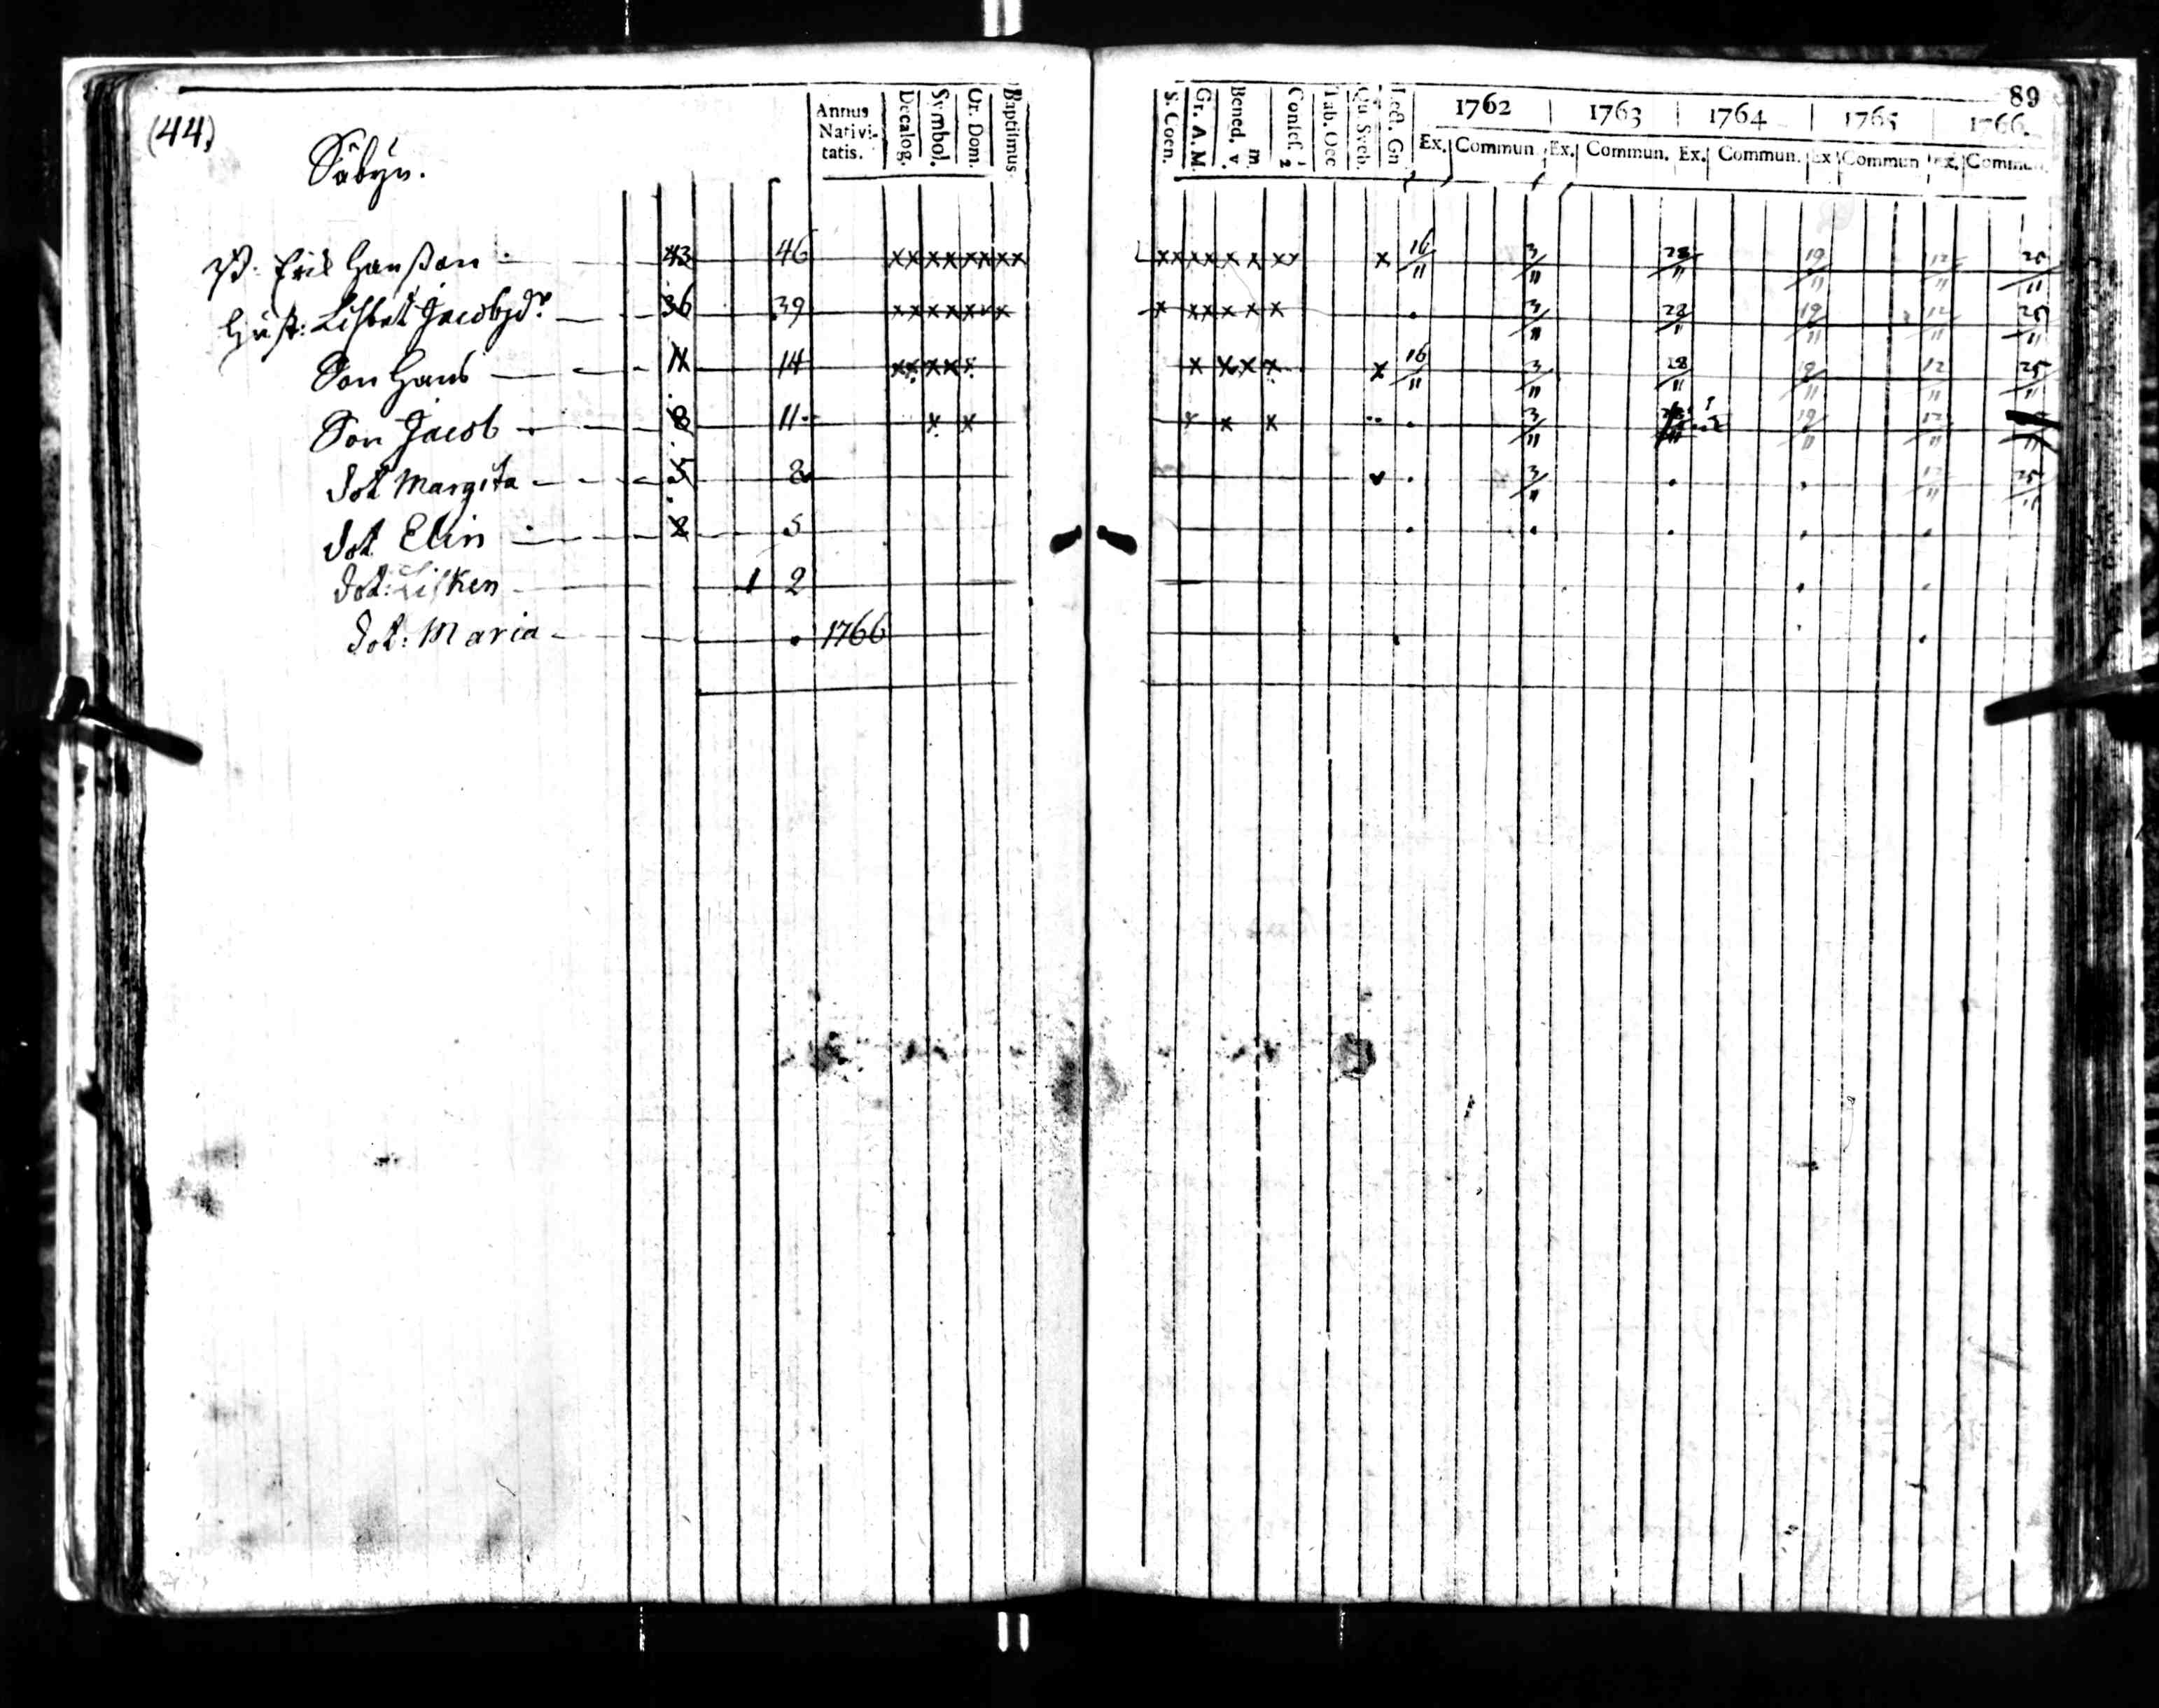 (44)
Säbyn.
Annus Nativitatis. Decalog. Symbol. Or. Dom. Baptismus
Erik Hanßon 43 46 xx xx xx xx
Hust: Lisbet Jacobsdr 36 39
Son Hans 11 14
Son Jacob 8 11
Dot Margita 5 8
Dot Elin 2 5
Dot: Lisken 1 2
Dot: Maria 1766
89
S. Coen. Gr. A. M. Bened. v. m. Confes. 1 2 Tab. Oec Qu. Sveb. Lect. Gn 1762 1763 1764 1765 1766.
Ex. Commun. Ex. Commun. Ex. Commun. Ex Commun Ex. Commun.
x 16/11 3/11 28/11 19/11 12/11 25/11
3/11 28/11 19/11 12/11 25/11
x 16/11 3/11 28/11 19/11 12/11 25/11
3/11 19/11 12/11
3/11 12/11 25/11